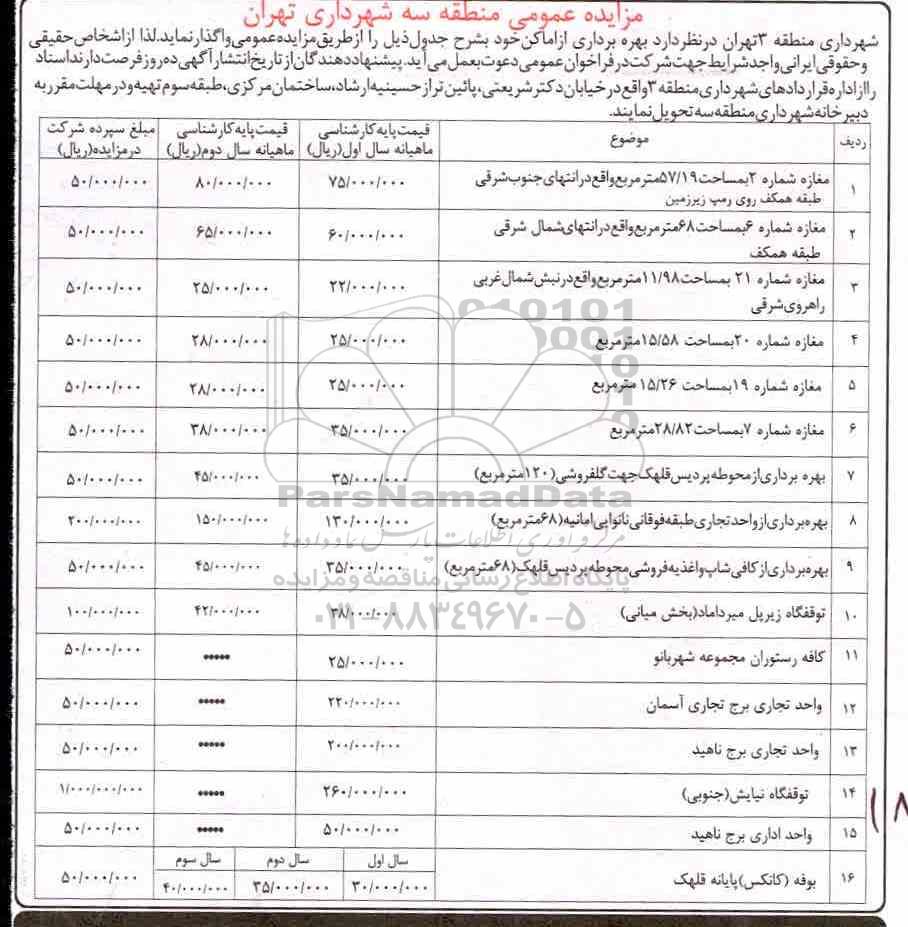 مزایده عمومی منطقه سه شهرداری تهران
شهرداری منطقه ۳ تهران در نظر دارد بهره برداری از اماکن خود بشرح جدول ذیل را از طریق مزایده عمومی واگذار نماید. لذا از اشخاص حقیقی
و حقوقی ایرانی واجد شرایط جهت شرکت در فراخوان عمومی دعوت بعمل می آید. پیشنهاد دهندگان از تاریخ انتشار آگهی ده روز فرصت دارند اسناد
را از اداره قراردادهای شهرداری منطقه ۳ واقع در خیابان دکتر شریعتی، پائین تر از حسینیه ارشاد، ساختمان مرکزی، طبقه سوم تهیه و در مهلت مقرر به
دبیرخانه شهرداری منطقه سه تحویل نمایند.
ردیف موضوع قیمت پایه کارشناسی ماهیانه سال اول(ریال) قیمت پایه کارشناسی ماهیانه سال دوم(ریال) مبلغ سپرده شرکت در مزایده(ریال)
۱ مغازه شماره ۲ بمساحت ۵۷/۱۹ مترمربع واقع در انتهای جنوب شرقی ۷۵/۰۰۰/۰۰۰ ۸۰/۰۰۰/۰۰۰ ۵۰/۰۰۰/۰۰۰
طبقه همکف روی رمپ زیرزمین
۲ مغازه شماره ۶ بمساحت ۶۸ مترمربع واقع در انتهای شمال شرقی ۶۰/۰۰۰/۰۰۰ ۶۵/۰۰۰/۰۰۰ ۵۰/۰۰۰/۰۰۰
طبقه همکف
۳ مغازه شماره ۲۱ بمساحت ۱۱/۹۸ مترمربع واقع در نبش شمال غربی ۲۲/۰۰۰/۰۰۰ ۲۵/۰۰۰/۰۰۰ ۵۰/۰۰۰/۰۰۰
راهروی شرقی
۴ مغازه شماره ۲۰ بمساحت ۱۵/۵۸ مترمربع ۲۵/۰۰۰/۰۰۰ ۲۸/۰۰۰/۰۰۰ ۵۰/۰۰۰/۰۰۰
۵ مغازه شماره ۱۹ بمساحت ۱۵/۲۶ مترمربع ۲۵/۰۰۰/۰۰۰ ۲۸/۰۰۰/۰۰۰ ۵۰/۰۰۰/۰۰۰
۶ مغازه شماره ۷ بمساحت ۲۸/۸۲ مترمربع ۳۵/۰۰۰/۰۰۰ ۳۸/۰۰۰/۰۰۰ ۵۰/۰۰۰/۰۰۰
۷ بهره برداری از محوطه پردیس قلهک جهت گلفروشی (۱۲۰ مترمربع) ۳۵/۰۰۰/۰۰۰ ۴۵/۰۰۰/۰۰۰ ۵۰/۰۰۰/۰۰۰
ParsNamadData
۸ بهره برداری از واحد تجاری طبقه فوقانی نانوایی امانیه (۶۸ مترمربع) ۱۳۰/۰۰۰/۰۰۰ ۱۵۰/۰۰۰/۰۰۰ ۲۰۰/۰۰۰/۰۰۰
مرکز فرآوری اطلاعات پارس نماد داده ها
۹ بهره برداری از کافی شاپ و اغذیه فروشی محوطه پردیس قلهک (۶۸ مترمربع) ۳۵/۰۰۰/۰۰۰ ۴۵/۰۰۰/۰۰۰ ۵۰/۰۰۰/۰۰۰
پایگاه اطلاع رسانی مناقصه و مزایده
۱۰ توقفگاه زیر پل میرداماد (بخش میانی) ۳۸/۰۰۰/۰۰۰ ۴۲/۰۰۰/۰۰۰ ۱۰۰/۰۰۰/۰۰۰
۰۲۱-۸۸۳۴۹۶۷۰-۵
۱۱ کافه رستوران مجموعه شهربانو ۲۵/۰۰۰/۰۰۰ ***** ۵۰/۰۰۰/۰۰۰
۱۲ واحد تجاری برج تجاری آسمان ۲۲۰/۰۰۰/۰۰۰ ***** ۵۰/۰۰۰/۰۰۰
۱۳ واحد تجاری برج ناهید ۲۰۰/۰۰۰/۰۰۰ ***** ۵۰/۰۰۰/۰۰۰
۱۴ توقفگاه نیایش (جنوبی) ۲۶۰/۰۰۰/۰۰۰ ***** ۱/۰۰۰/۰۰۰/۰۰۰
۱۵ واحد اداری برج ناهید ۵۰/۰۰۰/۰۰۰ ***** ۵۰/۰۰۰/۰۰۰
۱۶ بوفه (کانکس) پایانه قلهک سال اول ۳۰/۰۰۰/۰۰۰ سال دوم ۳۵/۰۰۰/۰۰۰ سال سوم ۴۰/۰۰۰/۰۰۰ ۵۰/۰۰۰/۰۰۰